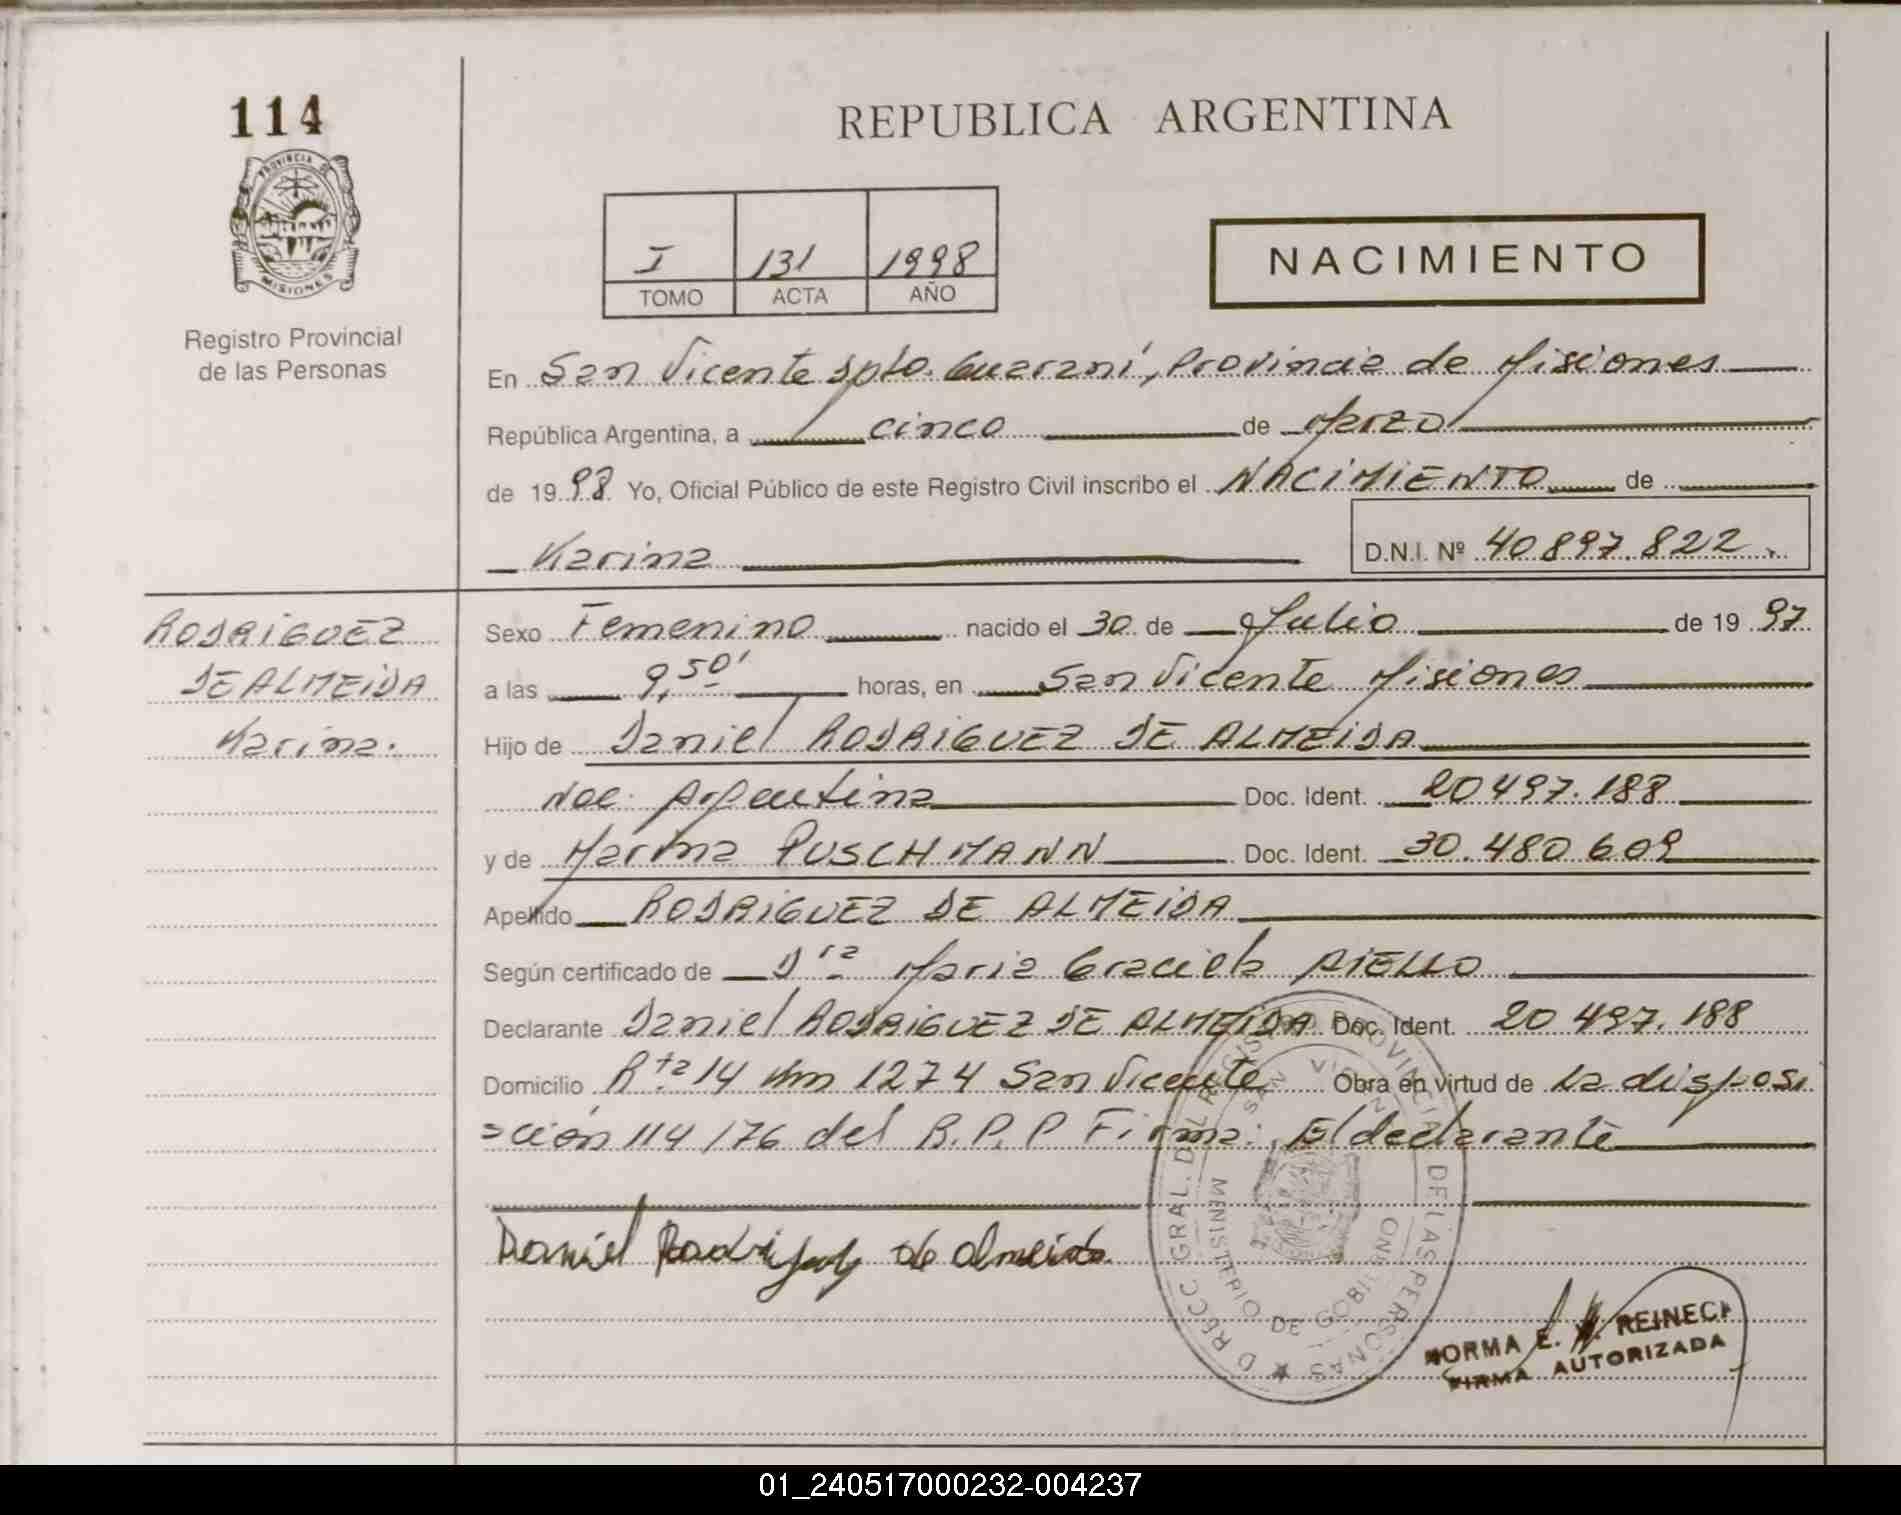 114
REPUBLICA ARGENTINA
PROVINCIA DE
MISIONES
Registro Provincial
de las Personas
I 131 1998
TOMO ACTA AÑO
NACIMIENTO
En San Vicente Dpto. Guaraní, Provincia de Misiones
República Argentina, a cinco de Marzo
de 1998 Yo, Oficial Público de este Registro Civil inscribo el NACIMIENTO de
Karina D.N.I. Nº 40897.822.
RODRIGUEZ
DE ALMEIDA
Karina.
Sexo Femenino nacido el 30 de Julio de 1997
a las 9,50' horas, en San Vicente Misiones
Hijo de Daniel RODRIGUEZ DE ALMEIDA
Nac. Argentina Doc. Ident. 20497.188
y de Marina PUSCHMANN Doc. Ident. 30.480.609
Apellido RODRIGUEZ DE ALMEIDA
Según certificado de Dra Maria Graciela AIELLO
Declarante Daniel RODRIGUEZ DE ALMEIDA Doc. Ident. 20 497.188
Domicilio Rta 14 Km 1274 San Vicente Obra en virtud de La disposi
=ción 114/76 del R.P.P Firma: El declarante
Daniel Rodriguez de Almeida
SAN VICEN
MINISTERIO DE GOBIERNO
GRAL. DEL REGISTRO PROVINCIAL DE LAS PERSONAS
NORMA E. REINECK
FIRMA AUTORIZADA
01_240517000232-004237